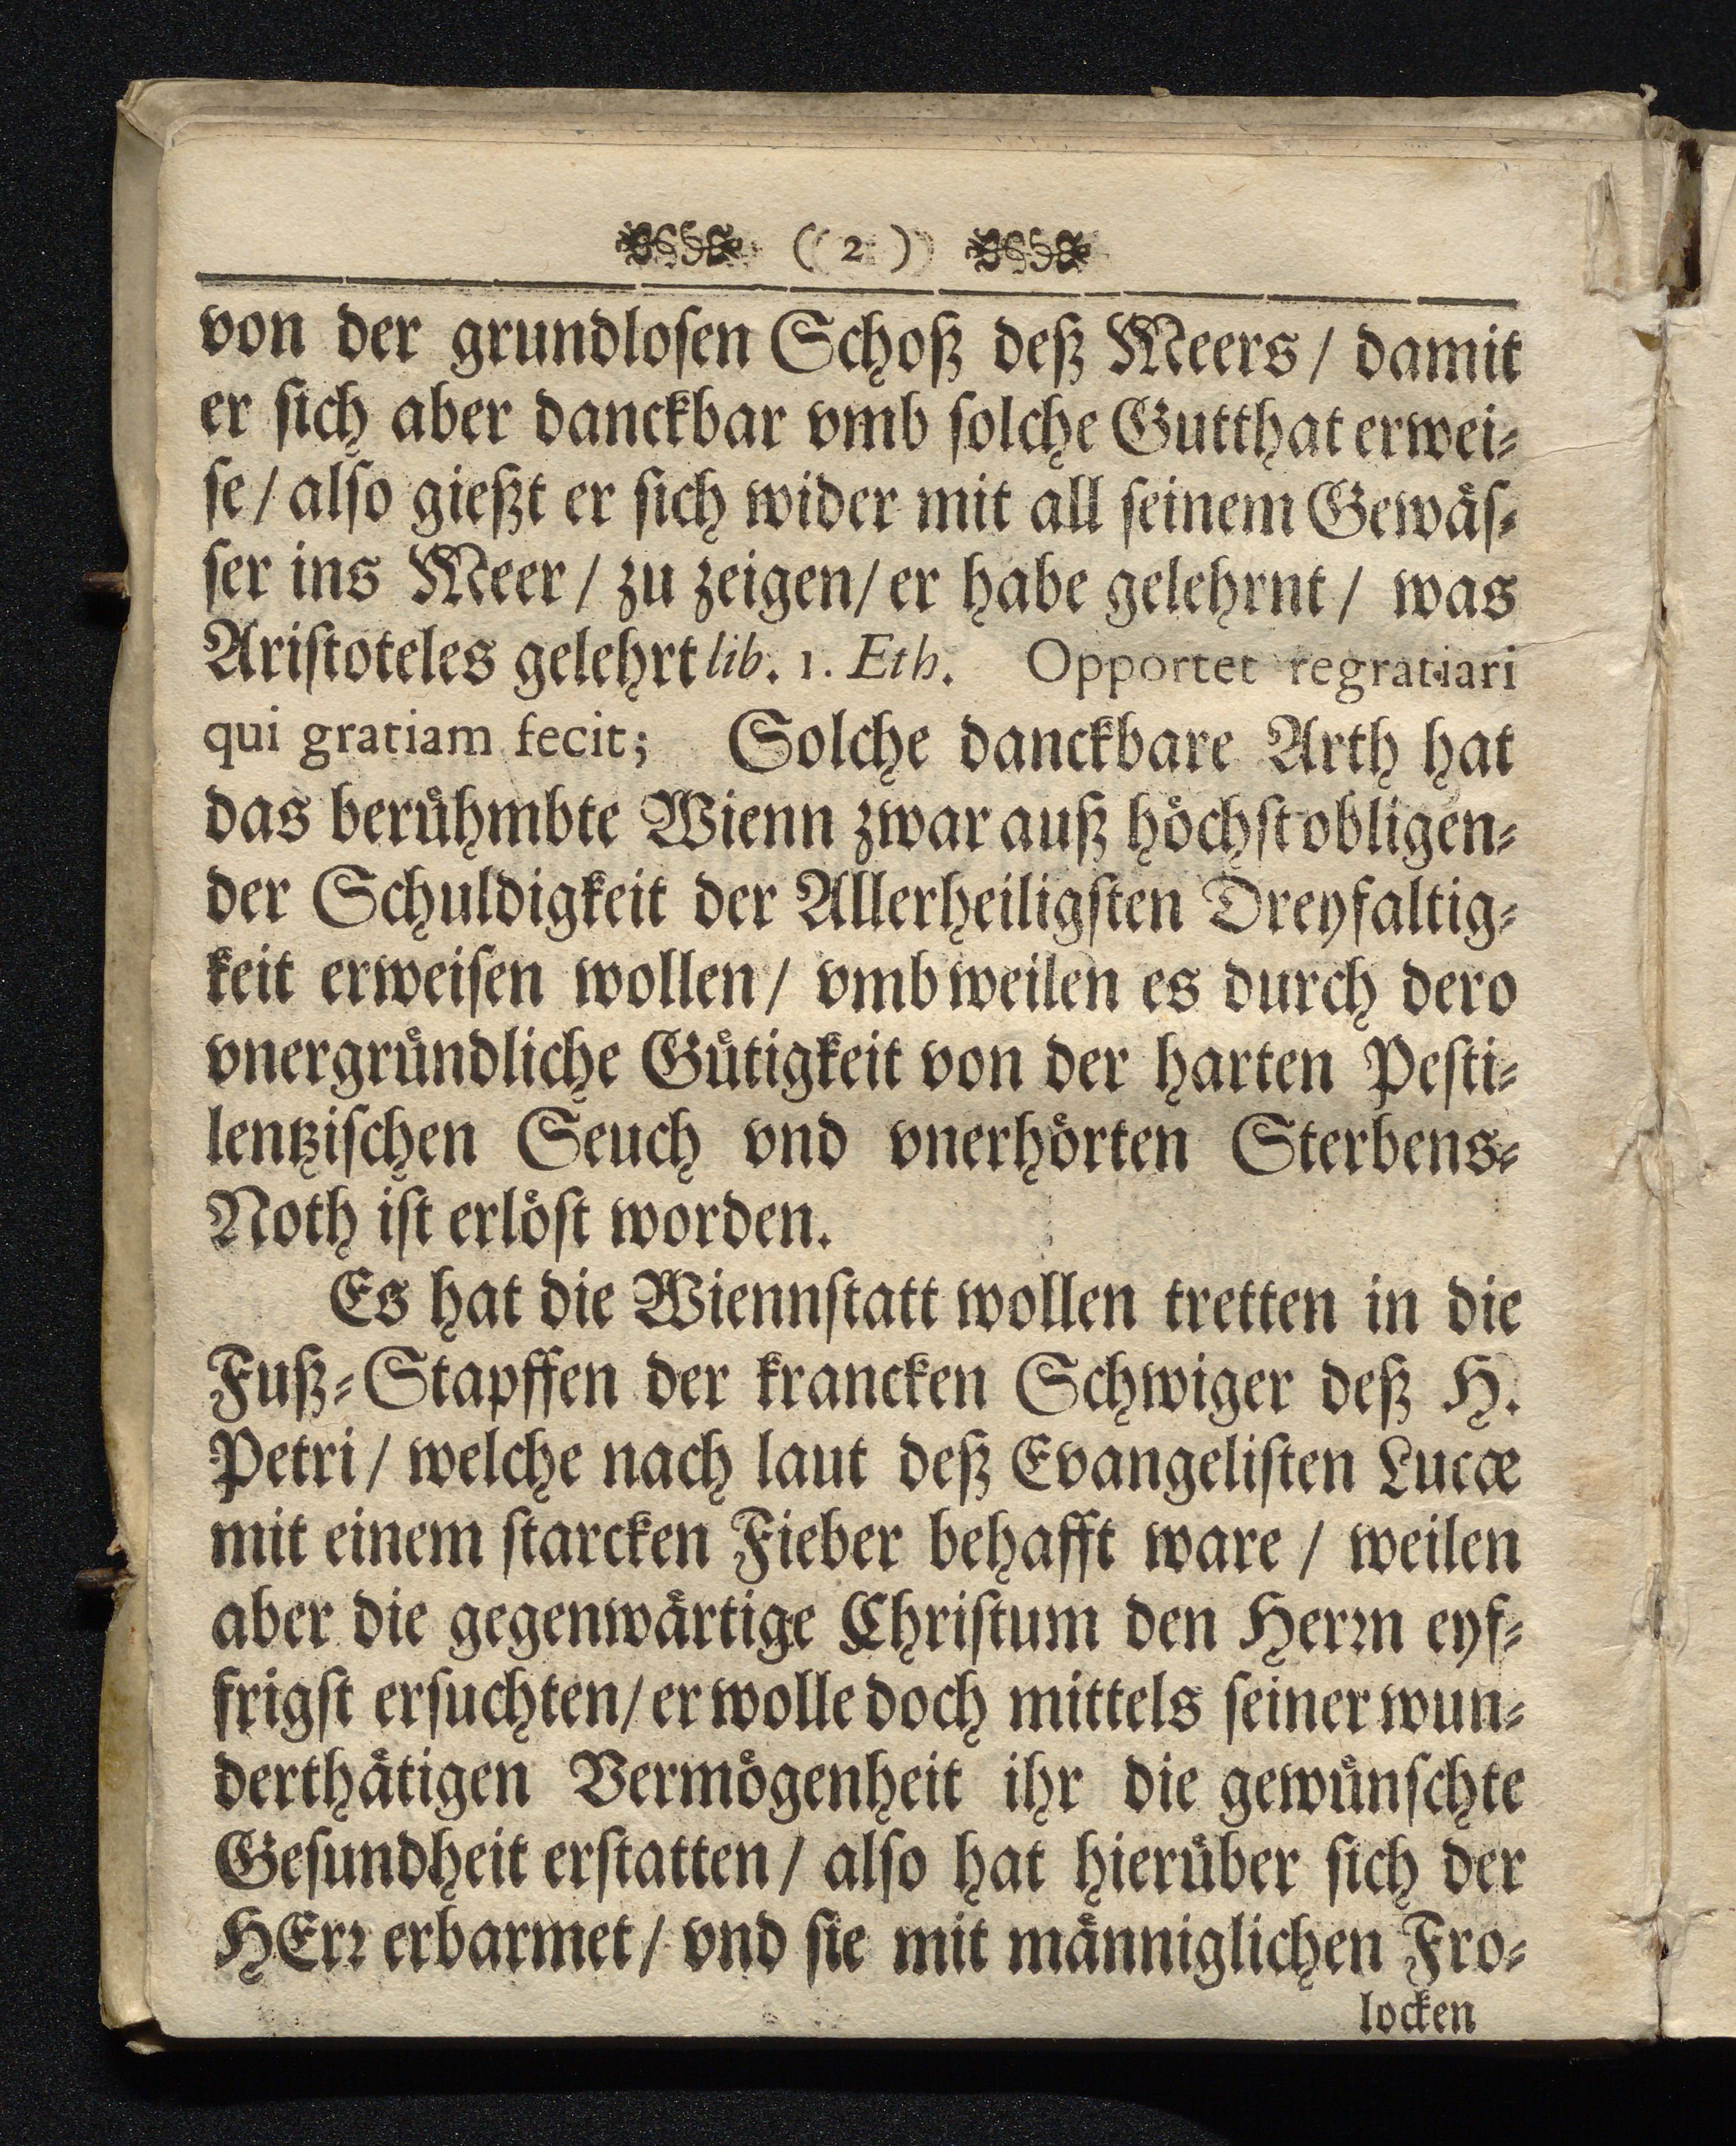 ( 2 )
von der grundlosen Schoß deß Meers / damit
er sich aber danckbar vmb solche Gutthat erwei⸗
se / also gießt er sich wider mit all seinem Gewåſ⸗
ser ins Meer / zu zeigen / er habe gelehrnt / was
Aristoteles gelehrt lib. 1. Eth. Opportet regratiari
qui gratiam fecit; Solche danckbare Arth hat
das berůhmbte Wienn zwar auß hőchst obligen⸗
der Schuldigkeit der Allerheiligsten Dreyfaltig⸗
keit erweisen wollen / vmbweilen es durch dero
vnergründliche Gütigkeit von der harten Pesti⸗
lentzischen Seuch vnd vnerhörten Sterbens⸗
Noth ist erlöst worden.
Es hat die Wiennstatt wollen tretten in die
Fuß⸗Stapffen der krancken Schwiger deß H.
Petri / welche nach laut deß Evangelisten Lucæ
mit einem starcken Fieber behafft ware / weilen
aber die gegenwärtige Christum den Herrn eyf⸗
frigst ersuchten / er wolle doch mittels seiner wun⸗
derthätigen Vermögenheit ihr die gewünschte
Gesundheit erstatten / also hat hierüber sich der
HErr erbarmet / vnd sie mit männiglichen Fro⸗
locken